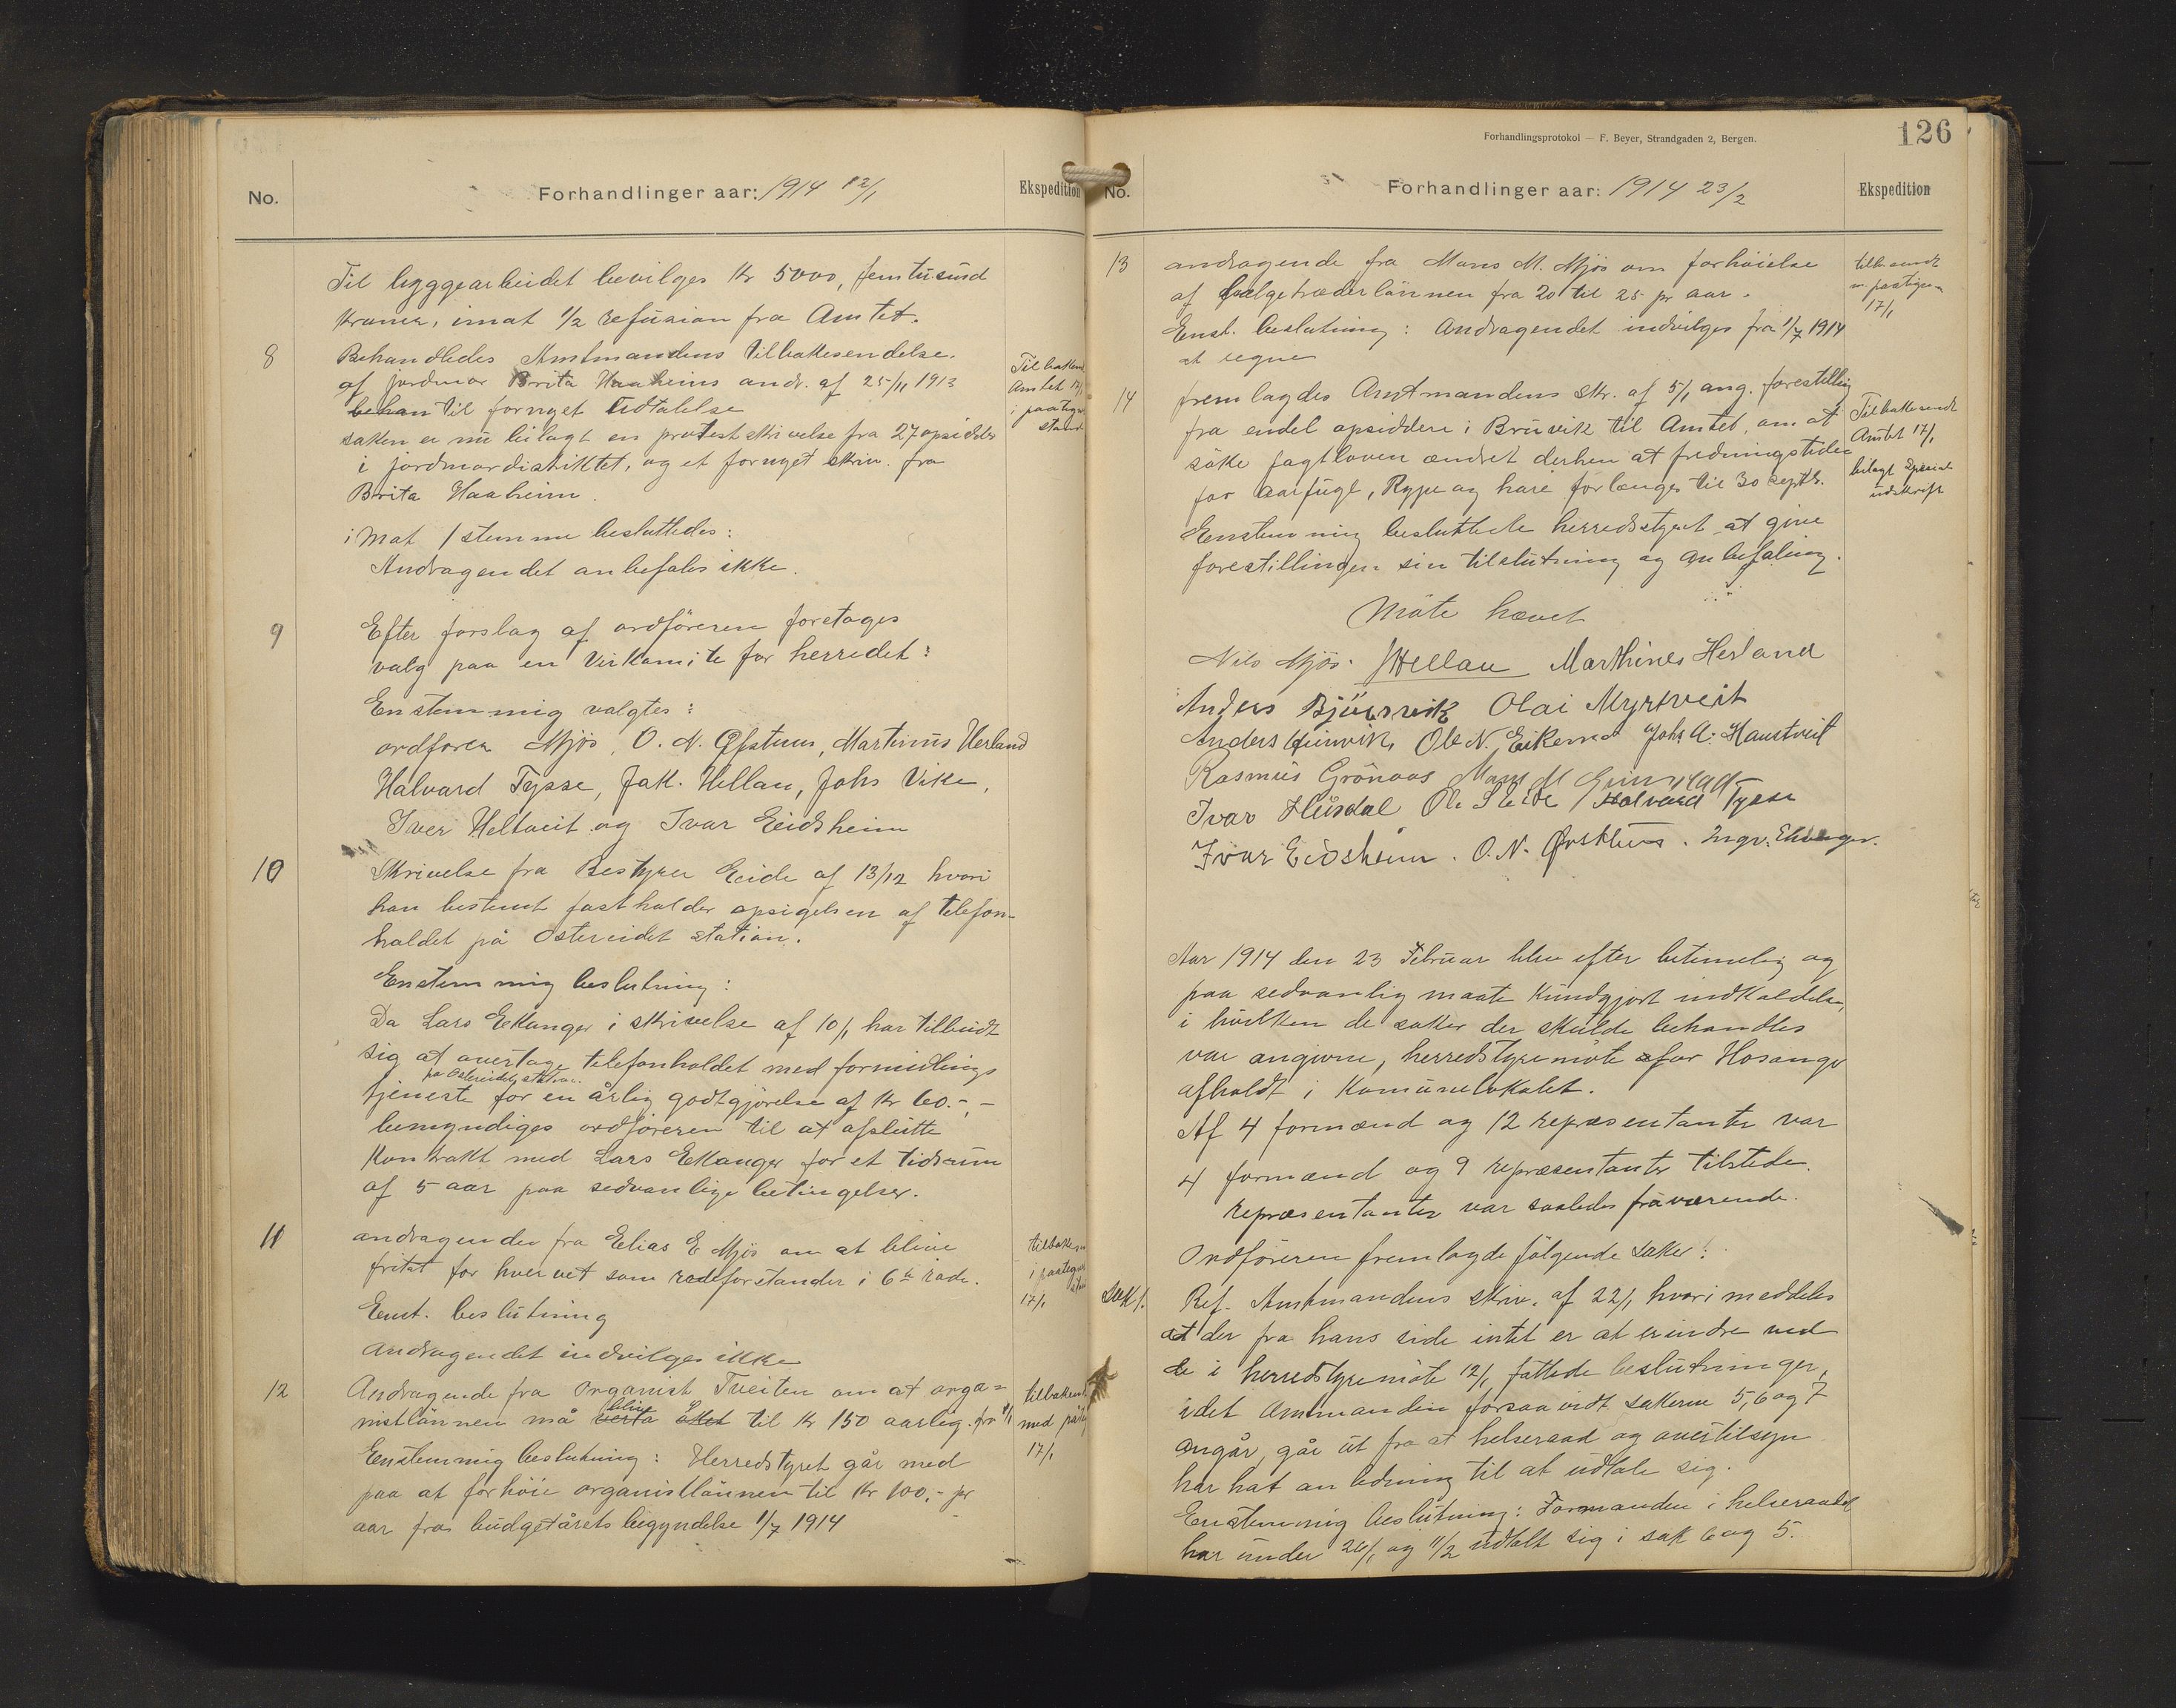 No.
Forhandlinger aar: 1914 12/1
Ekspedition
Til byggearbeidet bevilges Kr 5000, femtusind
Kroner, imot 1/2 refusion fra Amtet.
8
Behandledes Amtmandens tilbakesendelse
af jordmor Brita Haaheims andr. af 25/11 1913
behan til fornyet Udtalelse
saken er nu bilagt en protestskrivelse fra 27 opsiddere
i jordmordistriktet, og et fornyet skriv. fra
Brita Haaheim.
i Mot 1 stemme besluttedes:
Andragendet anbefales ikke.
Tilbakesend
Amtet 17/1
i paategn
stand
9
Efter forslag af ordföreren foretages
valg paa en Veikomite for herredet:
Enstemmig valgtes:
ordförer Mjös, O. N. Øfsthus, Martinus Herland
Halvard Tysse, Jak. Hellau, Johs Vike,
Iver Heltveit og Ivar Eidsheim
10
Skrivelse fra Bestyrer Eide af 13/12 hvori
han bestemt fastholder opsigelsen af telefon-
holdet på Östereidet station.
Enstemmig beslutning:
Da Lars Eknger i skrivelse af 10/1 har tilbudt
sig at overtage telefonholdet med formidlings
på Östereidets station.
tjeneste for en årlig godtgjörelse af Kr 60.-,-
bemyndiges ordföreren til at afslutte
Kontrakt med Lars Ekanger for et tidsrum
af 5 aar paa sedvanlige betingelser.
11
andragende fra Elias E Mjös om at blive
fritat for hvervet som rodeforstander i 6te rode.
Enst. beslutning
Andragendet indvilges ikke
tilbakes
i paategn
17/1
12
Andragende fra Organist Tveiten om at orga=
nistlönnen må verta blive öket til Kr 150 aarlig. fra 1/1
Enstemmig beslutning: Herredstyret går med
paa at forhöie organistlönnen til Kr 100,- pr
aar fra budgetårets begyndelse 1/7 1914
tilbakesend
med påteg
17/1
Forhandlingsprotokol — F. Beyer, Strandgaden 2, Bergen.
126
No.
Forhandlinger aar: 1914 23/2
Ekspedition
13
andragende fra Mons M. Mjös om forhöielse
af bælgetræderlönnen fra 20 til 25 pr aar.
Enst. beslutning: Andragendet indvilges fra 1/7 1914
at regne
tilbakesendt
m. paategn
17/1
14
fremlagdes Amtmandens skr. af 5/1 ang. forestilling
fra endel opsiddere i Bruvik til Amtet, om at
söke jagtloven ændret derhen at fredningstiden
for Aarfugl, Rype og hare forlænges til 30 septb.
Enstemmig besluttede herredsstyret at give
forestillingen sin tilslutning og anbefaling.
Tilbakesendt
Amtet 17/1
bilagt Special
udskrift
Möte hævet
Nils Mjös. JHellau Marthines Herland
Anders Björsvik Olai Myrtveit
Anders Heinvik, Ole N. Eikemo Johs A. Haustveit
Rasmus Grönaas Mons M
Ivar Husdal Ole Eide Halvard Tysse
Ivar Eidsheim. O. N. Øvsthus. Ingv. Ekanger.
Aar 1914 den 23 Februar blev efter betimelig og
paa sedvanlig maate kundgjort indkaldelse,
i hvilken de saker der skulde behandles
var angivne, herredstyremöte for Hosanger
afholdt i Komunelokalet.
Af 4 formænd og 12 repræsentanter var
4 formænd og 9 repræsentanter tilstede.
repræsentanter var saaledes fraværende.
Ordföreren fremlagde fölgende saker:
Sak 1.
Ref. Amtmandens skriv. af 22/1 hvori meddeles
at der fra hans side intet er at erindre ved
de i herredstyremöte 12/1 fattede beslutninger,
idet Amtmanden forsaavidt sakerne 5,6 og 7
angår, går ut fra at helseraad og overtilsyn
har hat anledning til at udtale sig.
Enstemmig beslutning: Formanden i helseraadet
har under 26/1 og 11/2 udtalt sig i sak 6 og 5.